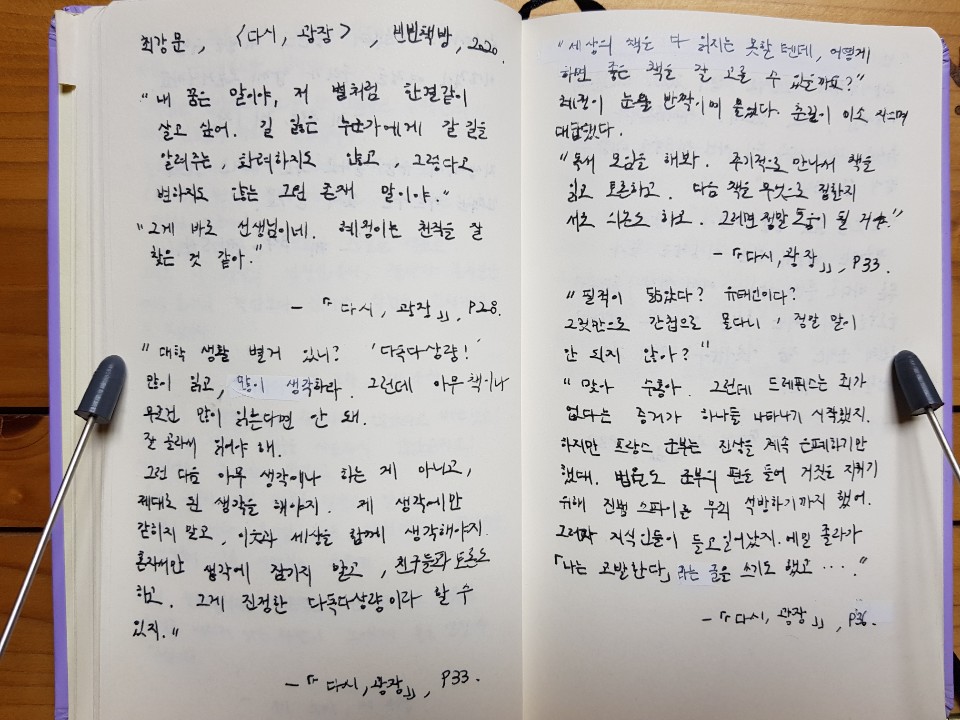 최강문, <다시, 광장>, 빈빈책방, 2020.
"내 꿈은 말이야, 저 별처럼 한결같이
살고 싶어. 길 잃은 누군가에게 갈 길을
알려주는, 화려하지도 않고, 그렇다고
변하지도 않는 그런 존재 말이야."
"그게 바로 선생님이네. 혜정이는 천직을 잘
찾은 것 같아."
-『다시, 광장』, P28.
"대학 생활 별거 있니? '다독다상량!'
많이 읽고, 많이 생각하라. 그런데 아무 책이나
무조건 많이 읽는다면 안 돼.
잘 골라서 읽어야 해.
그런 다음 아무 생각이나 하는 게 아니고,
제대로 된 생각을 해야지. 제 생각에만
갇히지 말고, 이웃과 세상을 함께 생각해야지.
혼자서만 생각에 잠기지 말고, 친구들과 토론도
하고. 그게 진정한 다독다상량이라 할 수
있지."
-『다시, 광장』, P33.
"세상의 책은 다 읽지는 못할 텐데, 어떻게
하면 좋은 책을 잘 고를 수 있을까요?"
혜정이 눈을 반짝이며 물었다. 춘길이 미소 지으며
대답했다.
"독서 모임을 해봐. 주기적으로 만나서 책을
읽고 토론하고. 다음 책을 무엇으로 정한지
서로 의논도 하고. 그러면 정말 도움이 될 거야."
-『다시, 광장』, P33.
"필적이 닮았다? 유태인이다?
그것만으로 간첩으로 몰다니, 정말 말이
안 되지 않아?"
"맞아 수롱아. 그런데 드레퓌스는 죄가
없다는 증거가 하나둘 나타나기 시작했지.
하지만 프랑스 군부는 진상을 계속 은폐하기만
했대. 법원도 군부의 편을 들어 거짓을 지키기
위해 진범 스파이를 무죄 석방하기까지 했어.
그러자 지식인들이 들고일어났지. 에밀 졸라가
「나는 고발한다」라는 글을 쓰기도 했고 …."
-『다시, 광장』, P36.